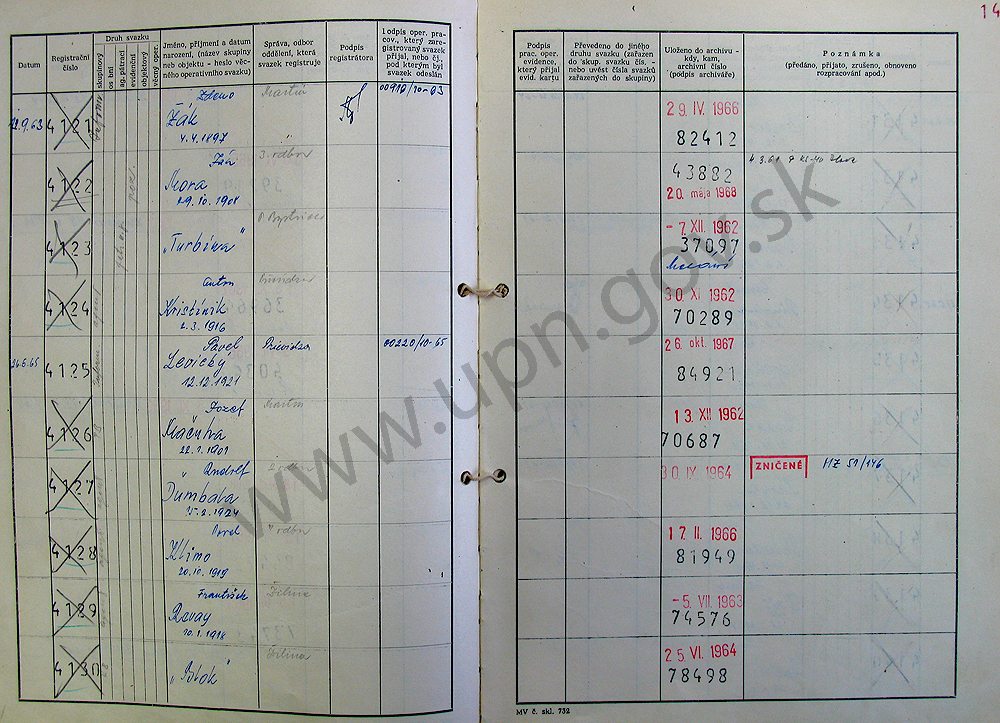 14
Datum
Registrační
číslo
Druh svazku
skupinový
os bní
ag. pátrací
evidenční
objektový
věcný oper.
Jméno, příjmení a datum
narození, (název skupiny
neb objektu - heslo věc-
ného operativního svazku)
Správa, odbor
oddělení, která
svazek registruje
Podpis
registrátora
Podpis oper. pra-
cov., který zare-
gistrovaný svazek
přijal, nebo čj.
pod kterým byl
svazek odeslán
4121
Žák
4.4.1897
Martin
4122
Ján
Mora
29.10.1908
3. odbor
4123
„Turbína"
4124
Kristiník
2.3.1916
24.6.65
4125
Pavel
Levický
12.12.1921
Prievidza
00220/10-65
4126
Jozef
22.1.1901
Martin
4127
Dumbala
15.2.1924
4128
Pavel
Klimo
20.10.1919
4129
František
Revay
10.1.1918
Žilina
4130
Žilina
Podpis
prac. oper.
evidence,
který přijal
evid. kartu
Převedeno do jiného
druhu svazku (zařazen
do skup. svazku čís. -
nebo uvést čísla svazků
zařazených do skupiny)
Uloženo do archivu -
kdy, kam,
archivní číslo
(podpis archiváře)
Poznámka
(předáno, přijato, zrušeno, obnoveno
rozpracování apod.)
29. IV. 1966
82412
43882
20. mája 1968
- 7. XII. 1962
37097
30. XI 1962
70289
26. okt. 1967
84921
13. XII 1962
70687
30. IX 1964
ZNIČENÉ
MZ 51/146
17. II. 1966
81949
- 5. VII. 1963
74576
25. VI. 1964
78498
MV č. skl. 732
www.upn.gov.sk